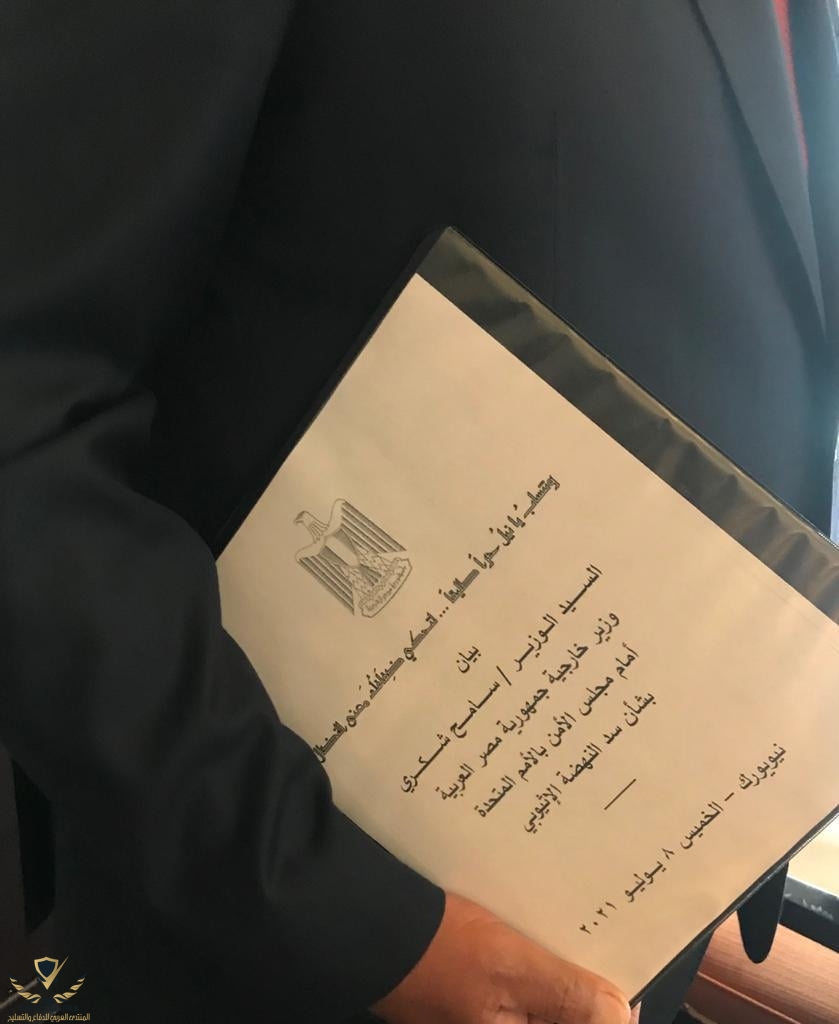 وتنساب يا نيل حرا طليقا ... لتحكي ضفافك معنى النضال
بيان
السيد الوزير / سامح شكري
وزير خارجية جمهورية مصر العربية
أمام مجلس الأمن بالأمم المتحدة
بشأن سد النهضة الإثيوبي
نيويورك - الخميس ٨ يوليو ٢٠٢١
المنتدى العربي للدفاع والتسليح